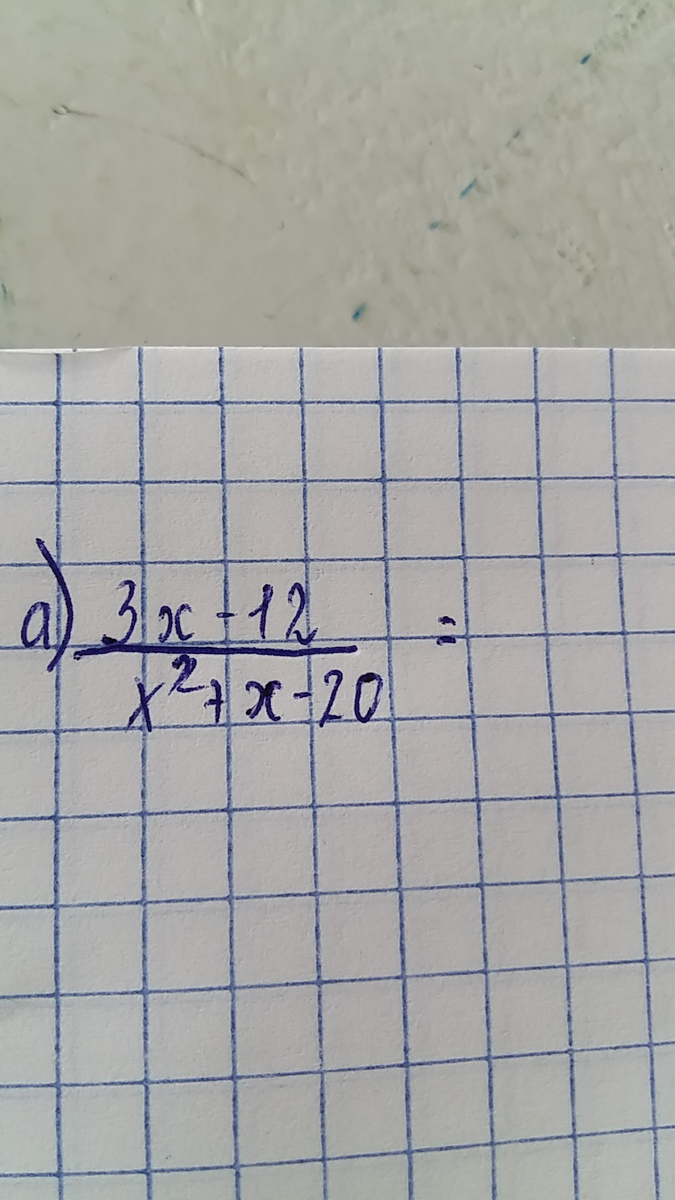 а) 3x - 12 =
x² + x - 20